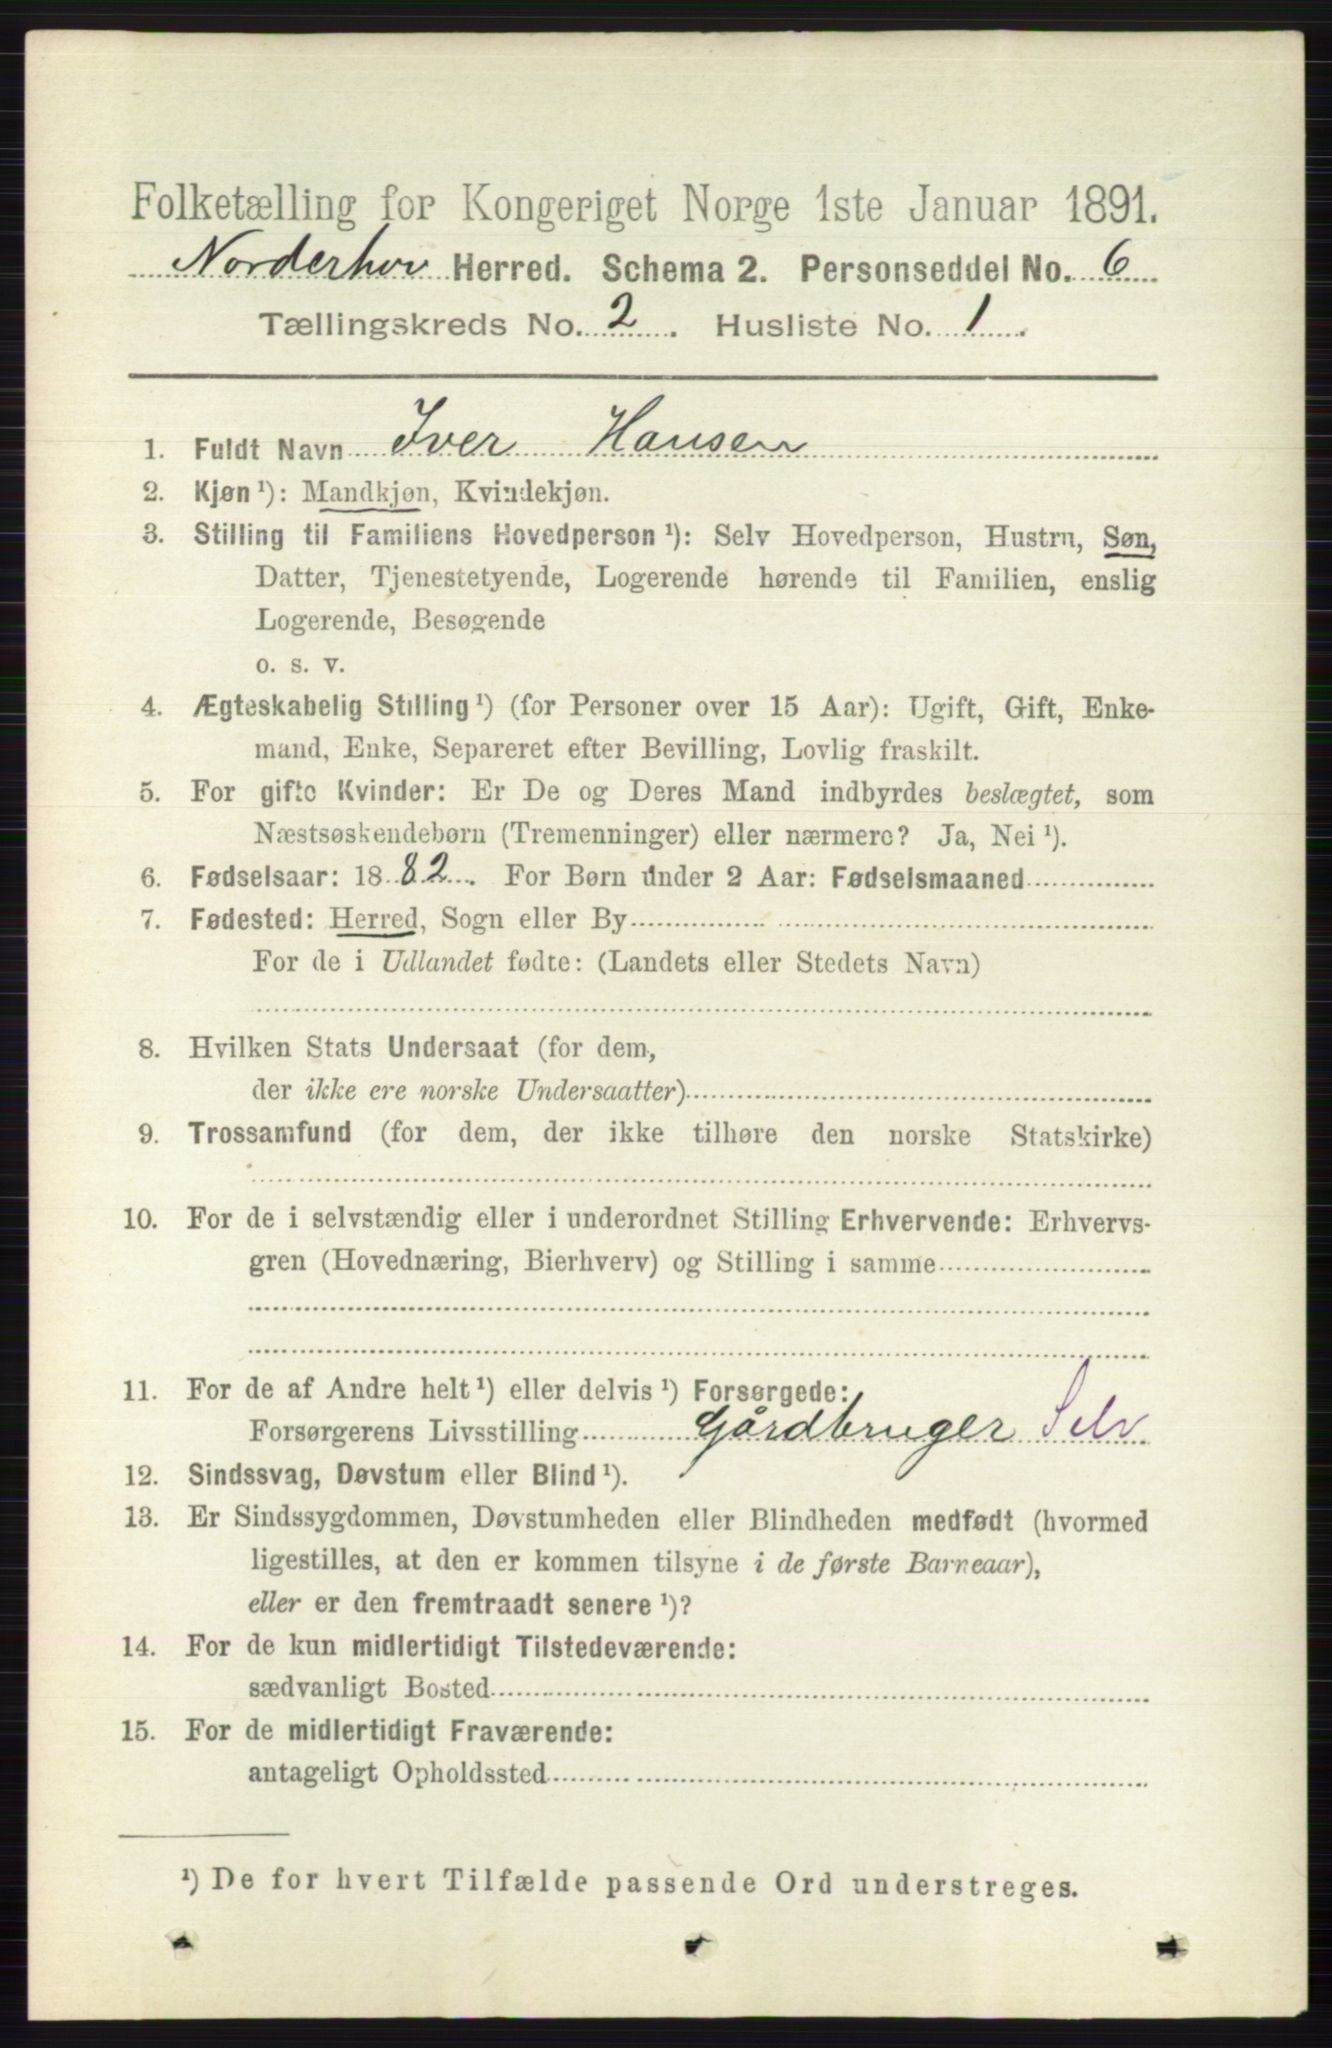 Folketælling for Kongeriget Norge 1ste Januar 1891.
Norderhov Herred. Schema 2. Personseddel No. 6
Tællingskreds No. 2. Husliste No. 1.
1. Fuldt Navn Iver Hansen
2. Kjøn ¹): Mandkjøn, Kvindekjøn.
3. Stilling til Familiens Hovedperson ¹): Selv Hovedperson, Hustru, Søn,
Datter, Tjenestetyende, Logerende hørende til Familien, enslig
Logerende, Besøgende
o. s. v.
4. Ægteskabelig Stilling ¹) (for Personer over 15 Aar): Ugift, Gift, Enke-
mand, Enke, Separeret efter Bevilling, Lovlig fraskilt.
5. For gifte Kvinder: Er De og Deres Mand indbyrdes beslægtet, som
Næstsøskendebørn (Tremenninger) eller nærmere? Ja, Nei ¹).
6. Fødselsaar: 1882. For Børn under 2 Aar: Fødselsmaaned
7. Fødested: Herred, Sogn eller By
For de i Udlandet fødte: (Landets eller Stedets Navn)
8. Hvilken Stats Undersaat (for dem,
der ikke ere norske Undersaatter)
9. Trossamfund (for dem, der ikke tilhøre den norske Statskirke)
10. For de i selvstændig eller i underordnet Stilling Erhvervende: Erhvervs-
gren (Hovednæring, Bierhverv) og Stilling i samme
11. For de af Andre helt ¹) eller delvis ¹) Forsørgede:
Forsørgerens Livsstilling Gårdbruger Selv
12. Sindssvag, Døvstum eller Blind ¹).
13. Er Sindssygdommen, Døvstumheden eller Blindheden medfødt (hvormed
ligestilles, at den er kommen tilsyne i de første Barneaar),
eller er den fremtraadt senere ¹)?
14. For de kun midlertidigt Tilstedeværende:
sædvanligt Bosted
15. For de midlertidigt Fraværende:
antageligt Opholdssted
¹) De for hvert Tilfælde passende Ord understreges.